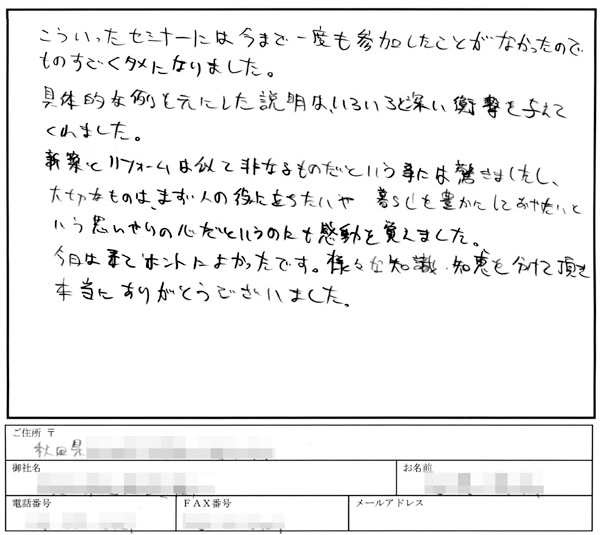 こういったセミナーには今まで一度も参加したことがなかったので
ものすごくタメになりました。
具体的な例を元にした説明は、いろいろと深い衝撃を与えて
くれました。
新築とリフォームは似て非なるものだという事には驚きましたし、
大切なものは、まず人の役に立ちたいや 暮らしを豊かにしてあげたいと
いう思いやりの心だというのにも感動を覚えました。
今日は来てホントによかったです。様々な知識、知恵を分けて頂き
本当にありがとうございました。
ご住所 〒
秋田県
御社名
お名前
電話番号
ＦＡＸ番号
メールアドレス